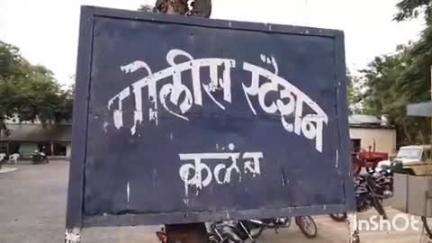 पोलीस स्टेशन
कळंब
InShot